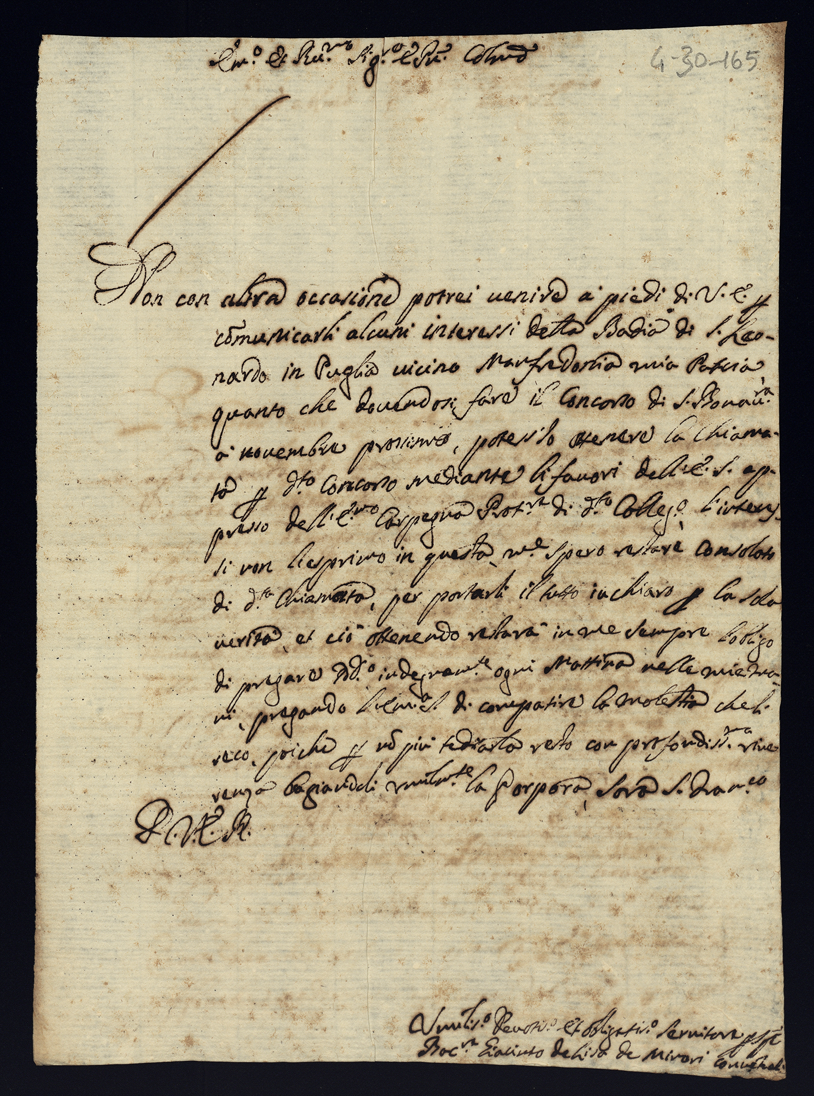 Em.o et Rev.mo Sig.re e P.ne Colmo
4-30-165
Non con altra occasione potrei venire a piedi di V. E. p
comunicarli alcuni interessi della Badia di S. Leo-
nardo in Puglia vicino Manfredonia mia Patria
quanto che dovendosi fare il Concorso di S. Bonav.ra
a novembre prossimo, potessilo ottenere la chiama-
ta p d.to Concorso mediante li favori dell'E. S. ap-
presso dell'E.mo Carpegna Prot.re di d.to Colleg.o l'interes-
si non l'esprimo in questa, spero restare consolato
di d.ta Chiamata, per portarli il tutto in chiaro p la sola
verità, et ciò ottenendo restarà in me sempre l'obligo
di pregare Dio indegnam.te ogni Mattina nelle mie
pregando l'Em.a S. di compatire la molestia che li
reco, poiche p nõ più tediarla resto con profondiss.ma rive
renza bagiandoli umilm.te la Porpora, Sora S. Fran.co
D. V. E. R.
Umilis.o Devotis.o et obligatis.o Servitore
Bac.re Giacinto de Lisa de Minori Conventuali